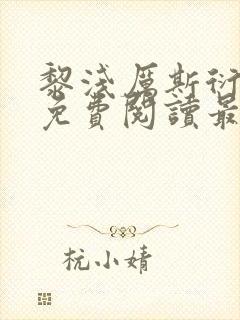 黎淺厲斯衍
免費閱讀最
杭小婧